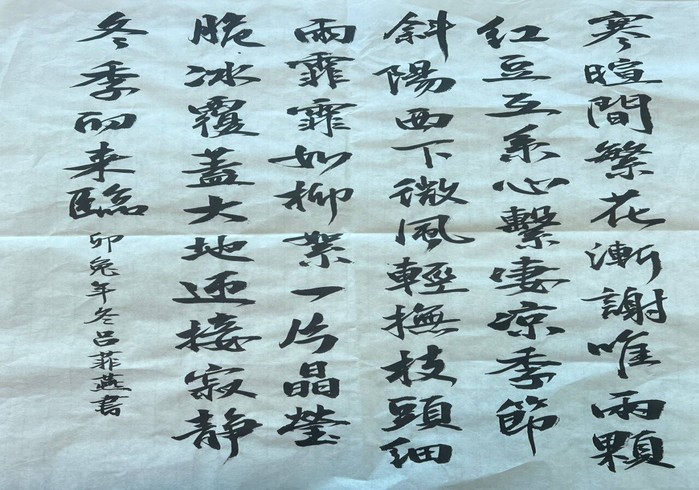 寒暄間繁花漸謝唯兩顆
紅豆互系心繫淒凉季節
斜陽西下微風輕撫枝頭細
雨霏霏如柳絮一片晶瑩
脆冰覆蓋大地迎接寂靜
冬季的来臨
卯兔年冬吕菲燕書